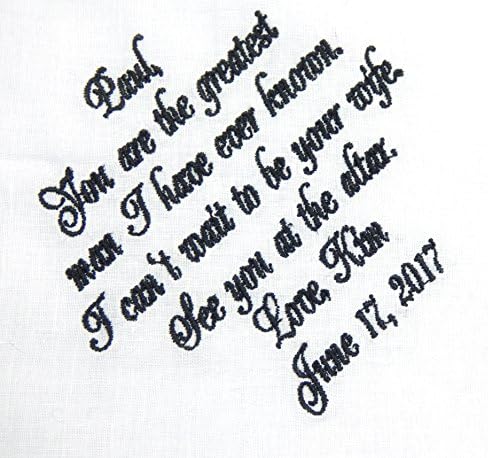 Paul,
You are the greatest
man I have ever known.
I can't wait to be your wife.
See you at the altar.
Love, Kim
June 17, 2017